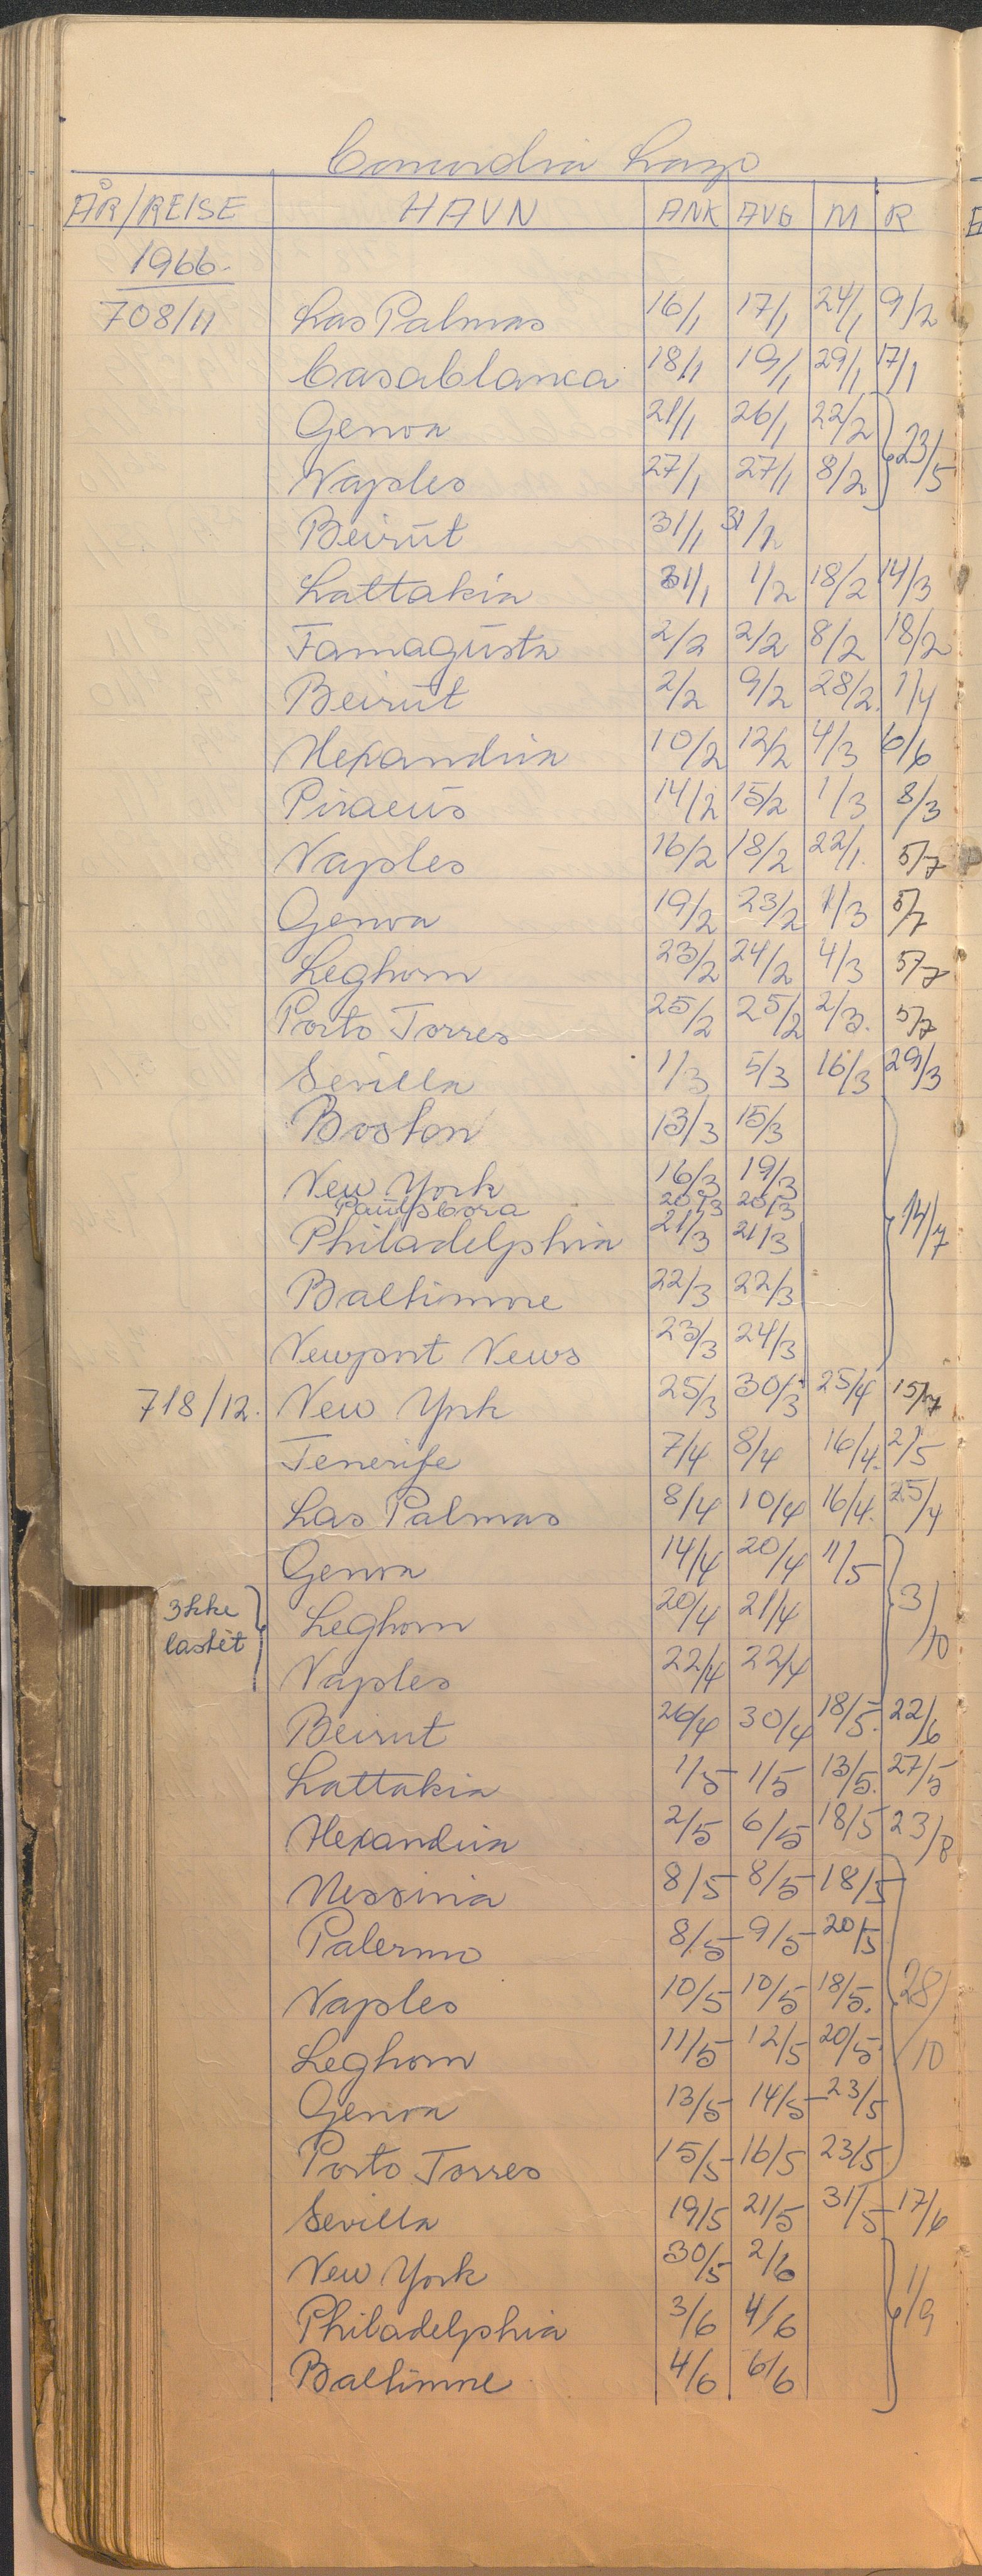 Concordia Lago
ÅR/REISE HAVN ANK AVG M R
1966.
708/11 Las Palmas 16/1 17/1 24/1 9/2
Casablanca 18/1 19/1 29/1 17/1
Genoa 21/1 26/1 22/2
Naples 27/1 27/1 8/2 } 23/5
Beirut 31/1 31/1
Lattakia 31/1 1/2 18/2 14/3
Famagusta 2/2 2/2 8/2 18/2
Beirut 2/2 9/2 28/2. 1/4
Alexandria 10/2 12/2 4/3 6/6
Piraeus 14/2 15/2 1/3 8/3
Naples 16/2 18/2 22/1. 5/7
Genoa 19/2 23/2 1/3 5/7
Leghorn 23/2 24/2 4/3 5/7
Porto Torres 25/2 25/2 2/3. 5/7
Sevilla 1/3 5/3 16/3 29/3
Boston 13/3 15/3
New York 16/3 19/3
Paulsbora 20/3 20/3
Philadelphia 21/3 21/3 } 14/7
Baltimore 22/3 22/3
Newport News 23/3 24/3
718/12. New York 25/3 30/3 25/4 15/7
Tenerife 7/4 8/4 16/4. 2/5
Las Palmas 8/4 10/4 16/4. 25/4
Genoa 14/4 20/4 11/5
Ikke lastet } Leghorn 20/4 21/4 } 3/10
Naples 22/4 22/4
Beirut 26/4 30/4 18/5. 22/6
Lattakia 1/5 1/5 13/5. 27/5
Alexandria 2/5 6/5 18/5 23/8
Messina 8/5 8/5 18/5
Palermo 8/5 9/5 20/5
Naples 10/5 10/5 18/5. } 28/10
Leghorn 11/5 12/5 20/5
Genoa 13/5 14/5 23/5
Porto Torres 15/5 16/5 23/5
Sevilla 19/5 21/5 31/5 17/6
New York 30/5 2/6
Philadelphia 3/6 4/6 } 1/9
Baltimore 4/6 6/6